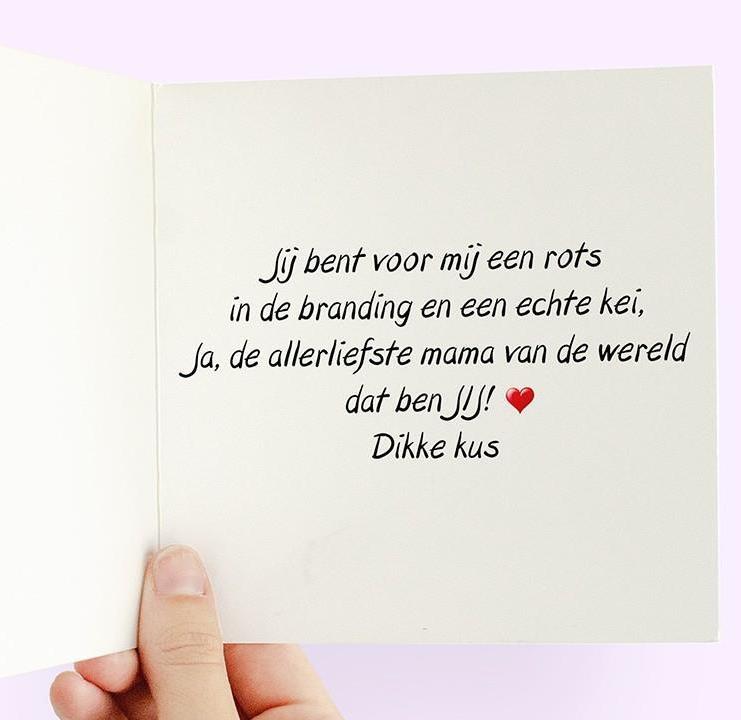 Jij bent voor mij een rots
in de branding en een echte kei,
Ja, de allerliefste mama van de wereld
dat ben JIJ! ❤
Dikke kus